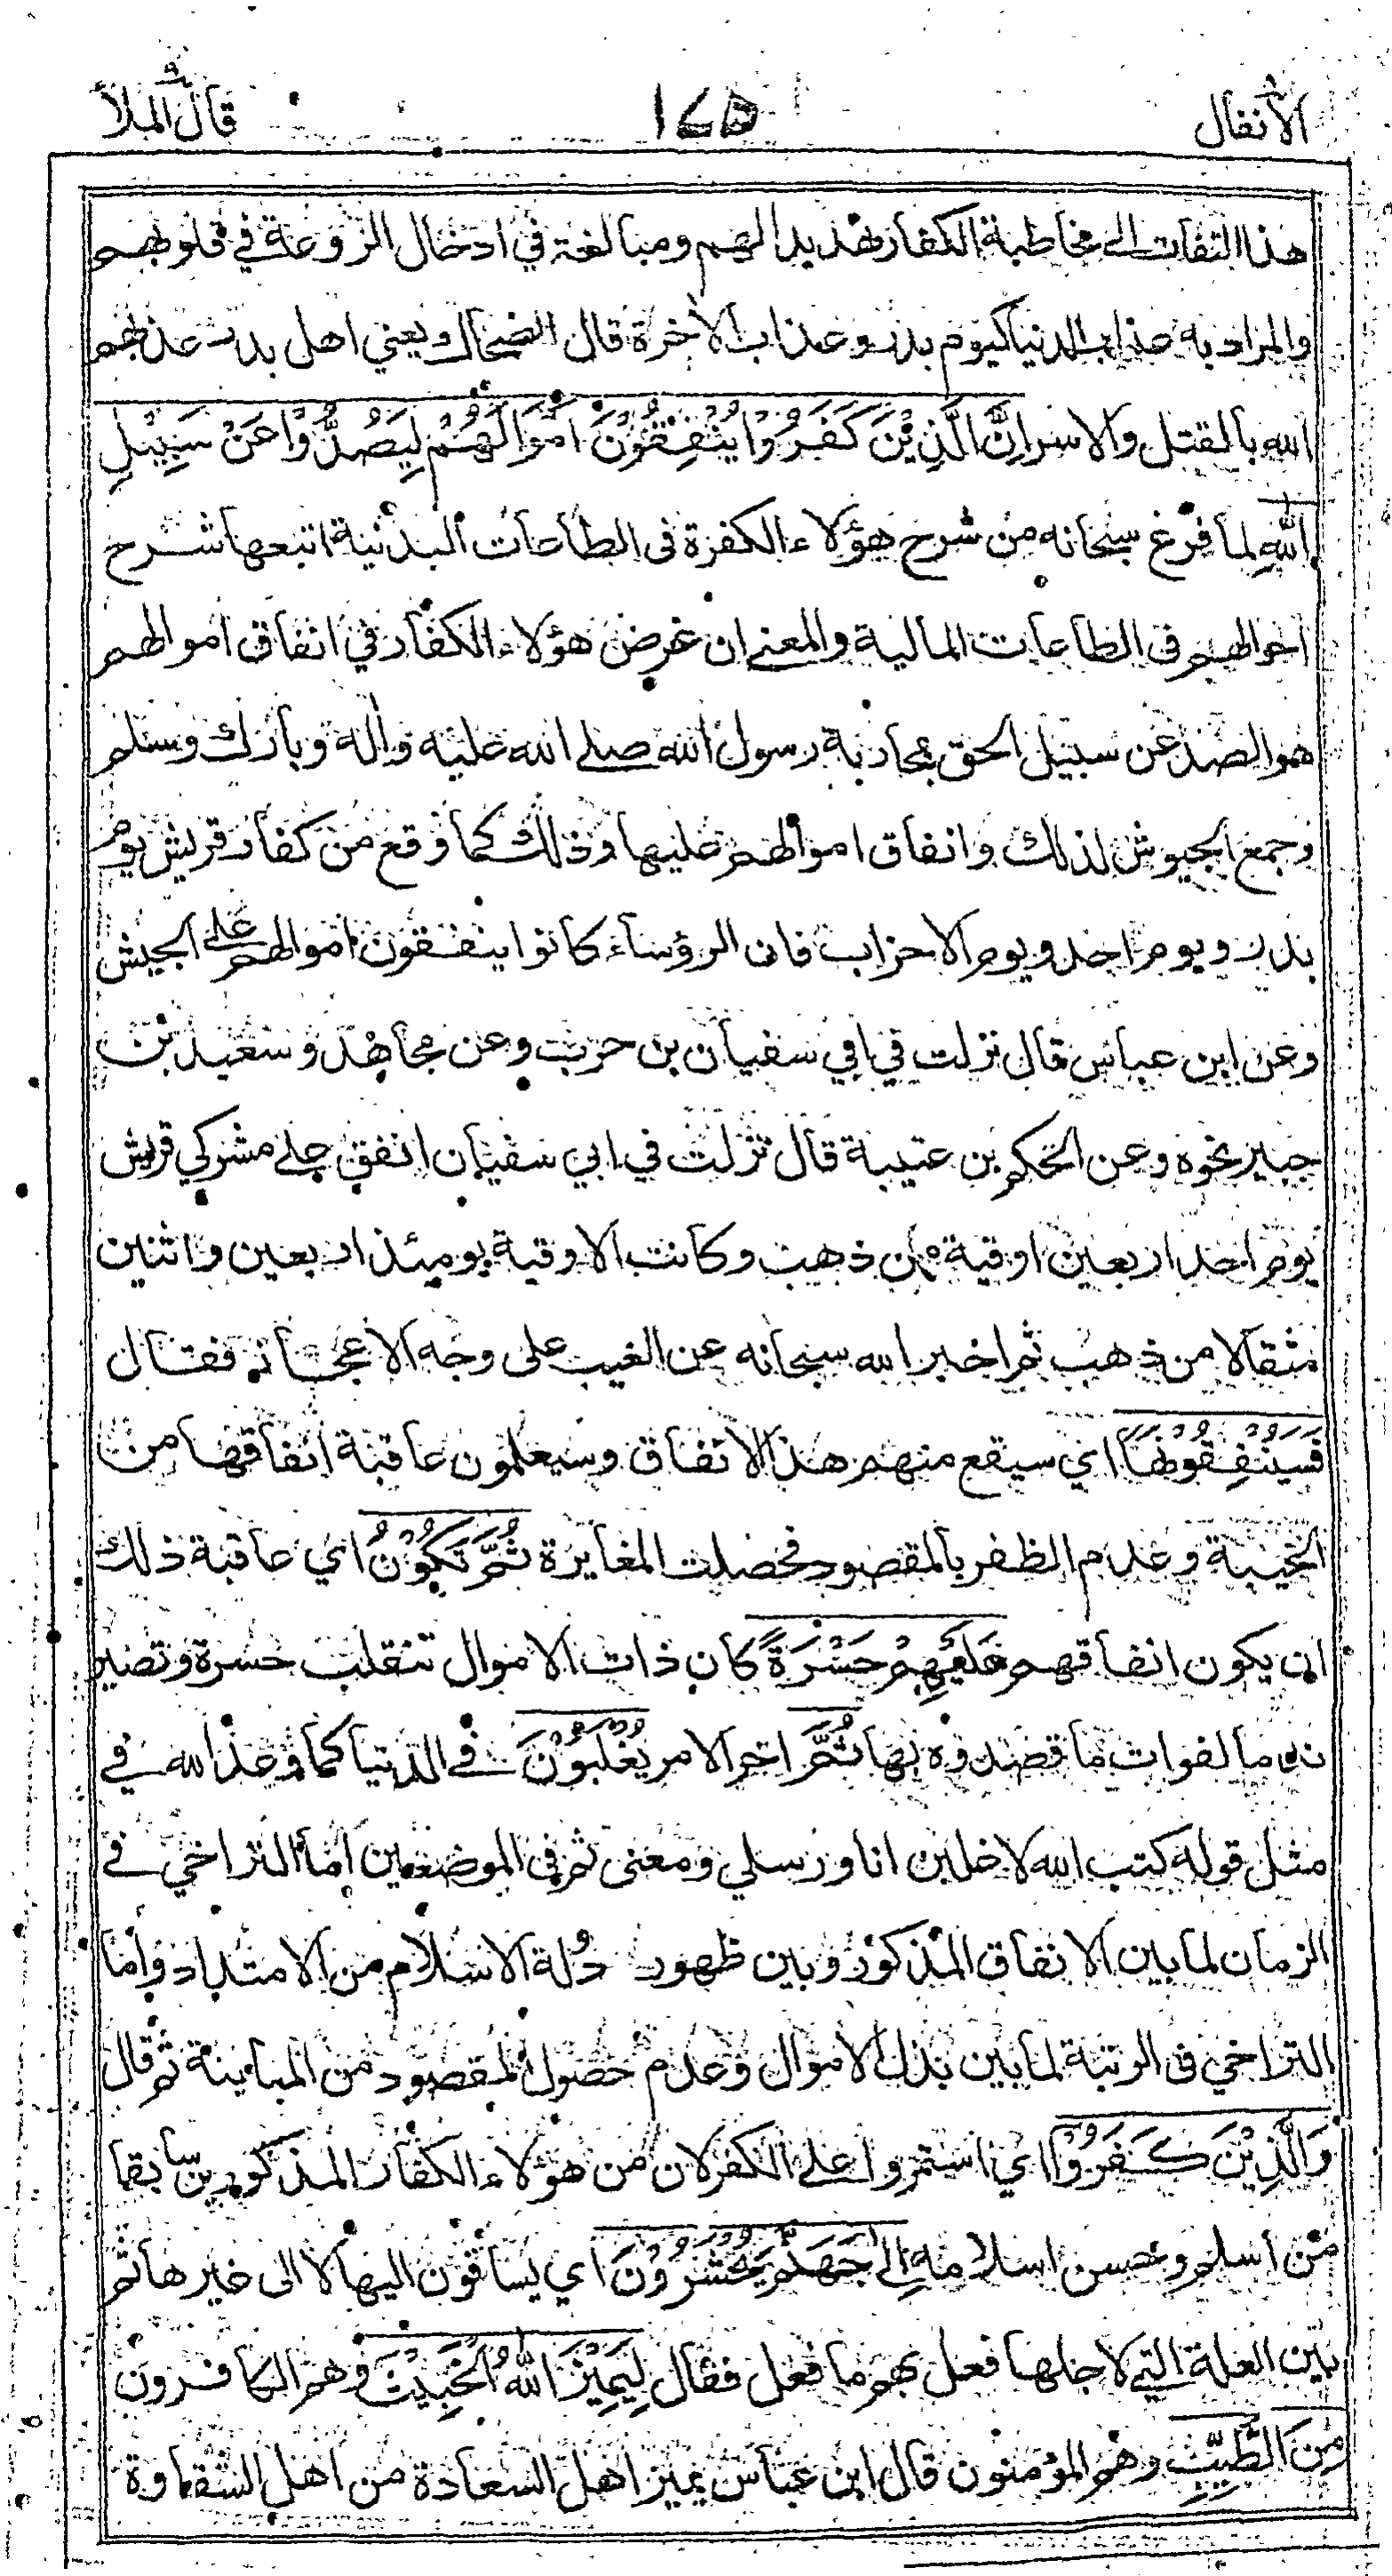 الأنفال ٨ ١٧٥ قال الملأ ٩
هذا التفات الى مخاطبة الكفار تهديدا لهم ومبالغة في ادخال الروعة في قلوبهم
والمراد به عذاب الدنيا كيوم بدر وعذاب الاخرة قال الضحاك ويعني اهل بدر عذبهم
الله بالقتل والاسر اِنَّ الَّذِيْنَ كَفَرُوْا يُنْفِقُوْنَ اَمْوَالَهُمْ لِيَصُدُّوْا عَنْ سَبِيْلِ
اللهِ لما فرغ سبحانه من شرح هؤلاء الكفرة فى الطاعات البدنية اتبعها شرح
احوالهم فى الطاعات المالية والمعنى ان غرض هؤلاء الكفار في انفاق اموالهم
هو الصد عن سبيل الحق بمحاربة رسول الله صلى الله عليه واله وبارك وسلم
وجمع الجيوش لذلك وانفاق اموالهم عليها وذلك كما وقع من كفار قريش يوم
بدر ويوم احد ويوم الاحزاب فان الرؤساء كانوا ينفقون اموالهم على الجيش
وعن ابن عباس قال نزلت في ابي سفيان بن حرب وعن مجاهد وسعيد بن
جبير نحوه وعن الحكم بن عتيبة قال نزلت في ابي سفيان انفق على مشركي قريش
يوم احد اربعين اوقية من ذهب وكانت الاوقية يومئذ اربعين واثنين
مثقالا من ذهب ثم اخبر الله سبحانه عن الغيب على وجه الاعجاز فقال
فَسَيُنْفِقُوْنَهَا اي سيقع منهم هذا الانفاق وسيعلمون عاقبة انفاقها من
الخيبة وعدم الظفر بالمقصود فحصلت المغايرة ثُمَّ تَكُوْنُ اي عاقبة ذلك
ان يكون انفاقهم عَلَيْهِمْ حَسْرَةً كان ذات الاموال تنقلب حسرة وتصير
ندما لفوات ما قصدوه بها ثُمَّ اخر الامر يُغْلَبُوْنَ في الدنيا كما وعد الله في
مثل قوله كتب الله لاغلبن انا ورسلي ومعنى ثم في الموضعين اما التراخي في
الزمان لما بين الانفاق المذكور وبين ظهور دولة الاسلام من الامتداد واما
التراخي فى الرتبة لما بين بذل الاموال وعدم حصول المقصود من المباينة ثم قال
وَالَّذِيْنَ كَفَرُوْا اي استمروا على الكفر لان من هؤلاء الكفار المذكورين سابقا
من اسلم وحسن اسلامه اِلٰى جَهَنَّمَ يُحْشَرُوْنَ اي يساقون اليها لا الى غيرها ثم
بين العلة التي لاجلها فعل بهم ما فعل فقال لِيَمِيْزَ اللهُ الْخَبِيْثَ وهم الكافرون
مِنَ الطَّيِّبِ وهم المؤمنون قال ابن عباس يميز اهل السعادة من اهل الشقاوة